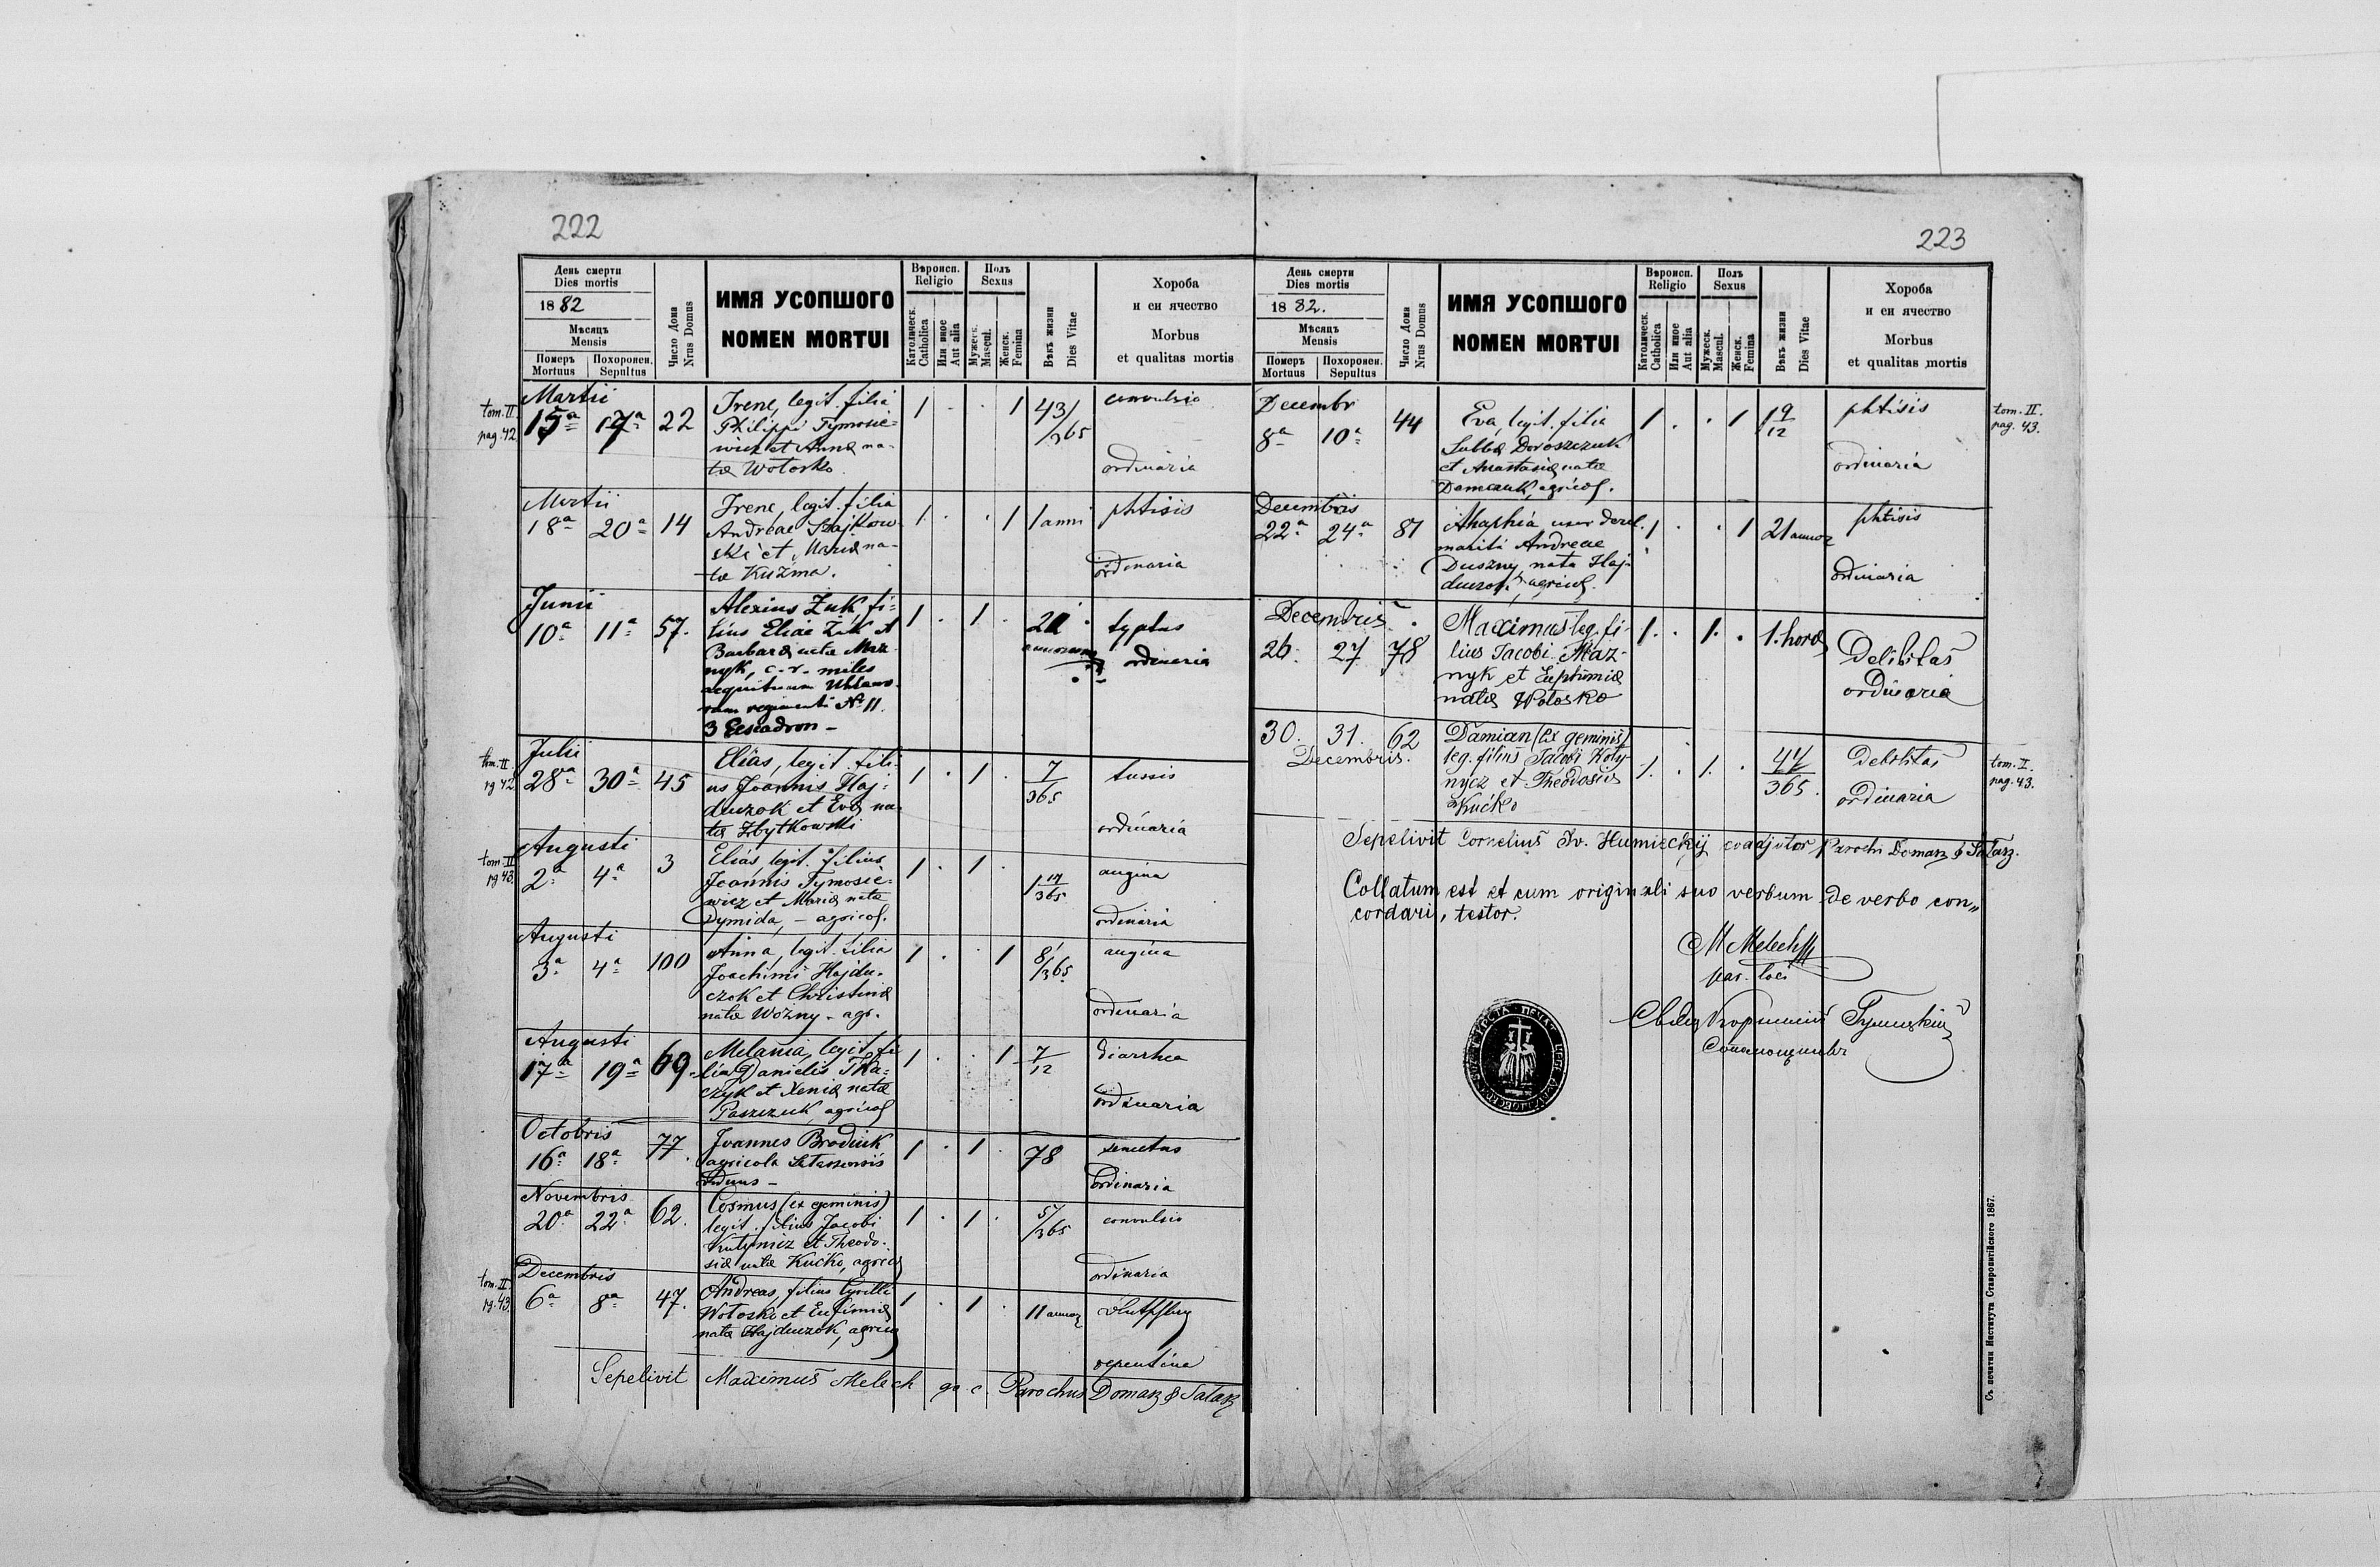 222
День смерти
Dies mortis
1882
Мѣсяцъ
Mensis
Померъ
Mortuus
Похоронен.
Sepultus
Число Дома
Nrus Domus
ИМЯ УСОПШОГО
NOMEN MORTUI
Вѣроисп.
Religio
Католическ.
Catholica
Или иное
Aut alia
Полъ
Sexus
Мужеск.
Mascul.
Женск.
Femina
Вѣкъ жизни
Dies Vitae
Хороба
и еи ячество
Morbus
et qualitas mortis
tom. II.
pag. 42
Martii
15ª 17ª 22
Irene, legit. filia
Philippi Tymosie=
wicz et Annæ na-
tæ Wołosko.
1 . . 1
43/365
convulsio
ordinaria
Martii
18ª 20ª 14
Irene, legit. filia
Andreae Szajkow-
ski et Mariæ na-
tæ Kuźma.
1 . . 1
1 anni
phtisis
ordinaria
Junii
10ª 11ª 57.
Alexius Żuk, fi=
lius Eliae Żuk et
Barbaræ natæ Maz-
nyk, c. r. miles
aequitum Uhlano-
rum regimenti Nº 11.
3 Escadron -
1 . 1 .
21
annorum
typhus
ordinaria
tom. II
pg 42
Julii
28ª 30ª 45
Elias, legit. fili-
us Joannis Haj-
duczok et Evæ na-
tæ Zbytkowski
1 . 1 .
7/365
tussis
ordinaria
tom. II
pg 43.
Augusti
2ª 4ª 3
Elias, legit. filius
Joannis Tymosie-
wicz et Mariæ natæ
Dymida, - agricol.
1 . 1 .
365
angina
ordinaria
Augusti
3ª 4ª 100
Anna, legit. filia
Joachimi Hajdu-
czok et Christinæ
natæ Woźny - agr.
1 . . 1
8/365
angina
ordinaria
Augusti
17ª 19ª 69.
Melania, legit. fi
lia Danielis Tka=
czyk et Xeniæ natæ
Paszczuk agricol
1 . . 1
7/12
diarrhea
ordinaria
Octobris
16ª 18ª 77.
Joannes Brodiuk
agricola
viduus -
1 . 1 .
78
senectus
ordinaria
Novembris
20ª 22ª 62.
Cosmus (ex geminis)
legit. filius Jacobi
Kutynicz et Theodo-
siæ natæ Kućko, agricol
1 . 1 .
5/365
convulsio
ordinaria
tom. II
pg. 43.
Decembris
6ª 8ª 47.
Andreas, filius Cyrilli
Wołoski et Eufimiæ
natæ Hajduczok, agricol
1 . 1 .
11 annor
repentina
Sepelivit Maximus Melech gr. c. Parochus Domasz & Satasz
223
День смерти
Dies mortis
1882.
Мѣсяцъ
Mensis
Померъ
Mortuus
Похоронен.
Sepultus
Число Дома
Nrus Domus
ИМЯ УСОПШОГО
NOMEN MORTUI
Вѣроисп.
Religio
Католическ.
Catholica
Или иное
Aut alia
Полъ
Sexus
Мужеск.
Mascul.
Женск.
Femina
Вѣкъ жизни
Dies Vitae
Хороба
и еи ячество
Morbus
et qualitas mortis
Decembr
8ª 10ª 44
Eva, legit. filia
Sabbæ Doroszczuk
et Anastasiæ natæ
Demczuk, agricol.
1 . . 1
1 9/12
phtisis
ordinaria
tom. II.
pag. 43.
Decembris
22ª 24ª 81
Ahaphia, uxor derel.
mariti Andreae
Duszny, nata Haj-
duczok, agricol.
1 . . 1
21 annor
phtisis
ordinaria
Decembris
26. 27 78
Maximus leg. fi-
lius Jacobi Maz-
nyk et Euphimiæ
natæ Wołosko
1. . 1. .
1. horæ
Debilitas
ordinaria
30. 31. 62
Decembris.
Damian (ex geminis)
leg. filius Jacobi Koty-
nycz et Theodosiæ
Kućko
1. . 1. .
44/365.
Debilitas
ordinaria
tom. II.
pag. 43.
Sepelivit Cornelius Iv. Humieckij coadjutor Parochi Domasz & Satasz.
Collatum est et cum originali suo verbum de verbo con„
cordari, testor.
M Melech
par. loci
Сотрудникъ
Съ печатни Института Ставропигійского 1867.